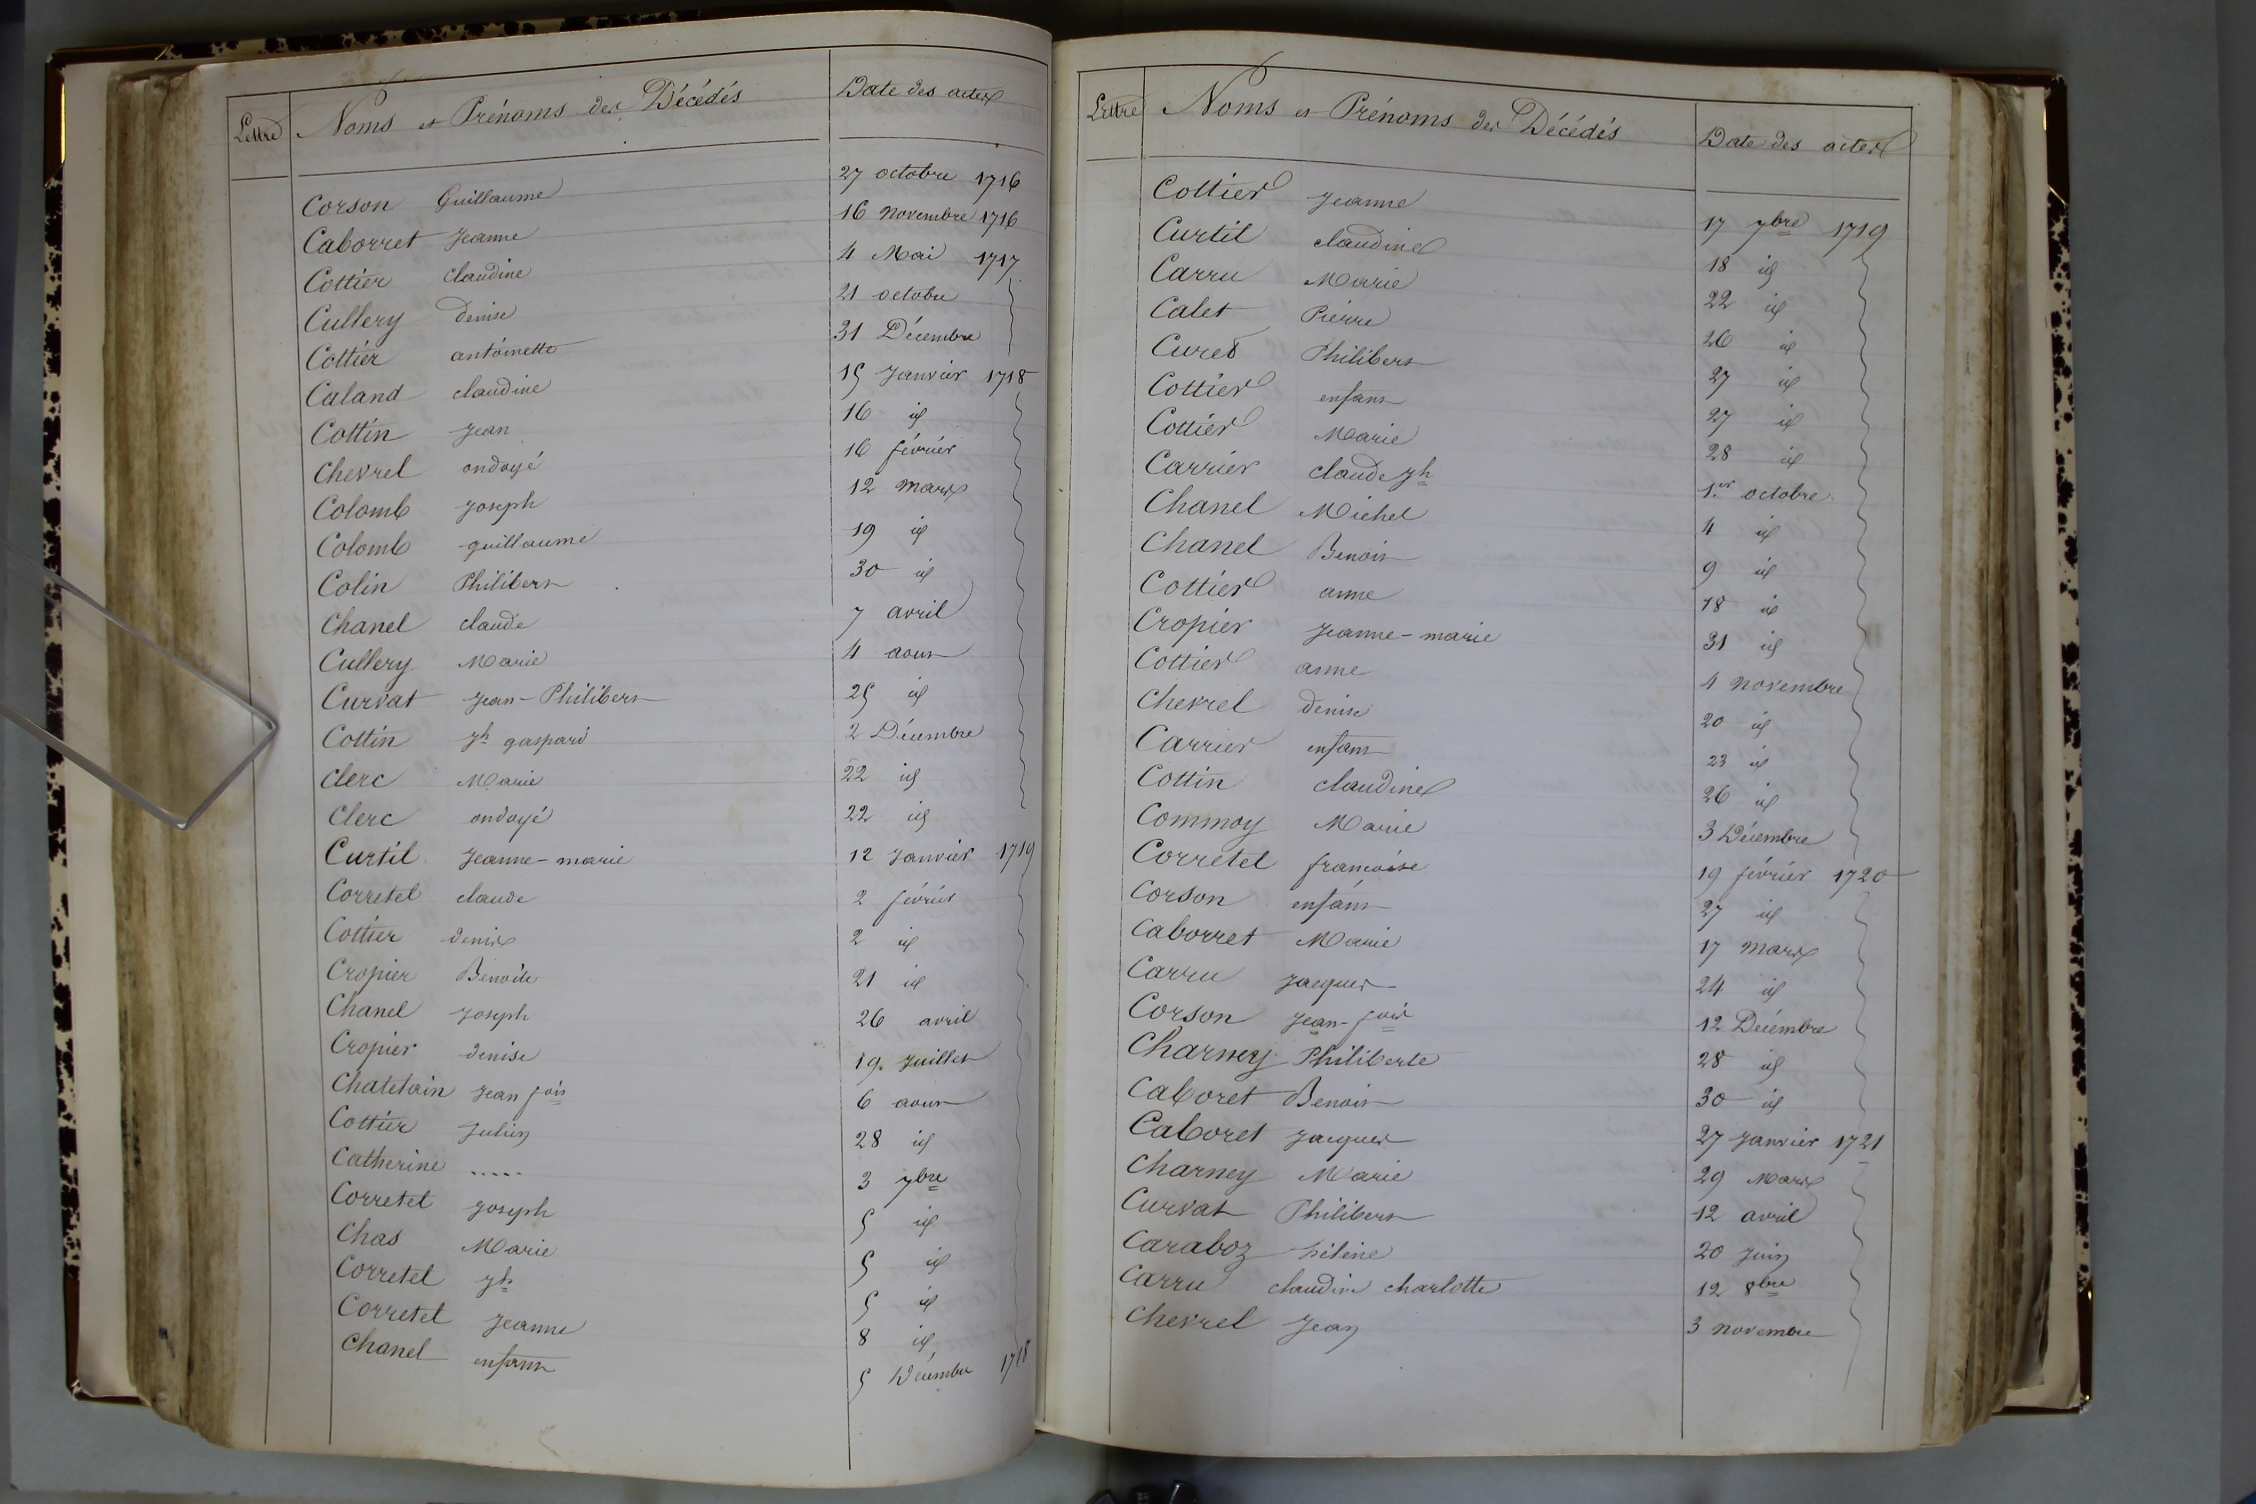 Lettre Noms et Prénoms des Décédés Date des actes
Corson Guillaume 27 octobre 1716
Caborret Jeanne 16 novembre 1716
Cottier claudine 4 Mai 1717
Cullery denise 21 octobre
Cottier antoinette 31 Décembre
Caland claudine 15 Janvier 1718
Cottin Jean 16 id
Chevrel ondoyé 16 février
Colomb Joseph 12 mars
Colomb guillaume 19 id
Colin Philibert 30 id
Chanel claude 7 avril
Cullery Marie 4 aout
Curvat Jean-Philibert 25 id
Cottin Jh gaspard 2 Décembre
Clerc Marie 22 id
Clerc ondoyé 22 id
Curtil Jeanne-marie 12 Janvier 1719
Corretel claude 2 février
Cottier denis 2 id
Cropier Benoite 21 id
Chanel Joseph 26 avril
Cropier denise 19 Juillet
Chatelain Jean fois 6 aout
Cottier Julien 28 id
Catherine ..... 3 7bre
Corretel Joseph 5 id
Chas Marie 5 id
Corretel Jh 5 id
Corretel Jeanne 8 id
Chanel enfant 5 Décembre 1718
Lettre Noms et Prénoms des Décédés Date des actes
Cottier Jeanne 17 7bre 1719
Curtil claudine 18 id
Carru Marie 22 id
Calet Pierre 26 id
Curet Philibert 27 id
Cottier enfant 27 id
Cottier Marie 28 id
Carrier claude Jh 1.er octobre
Chanel Michel 4 id
Chanel Benoit 9 id
Cottier anne 18 id
Cropier Jeanne-marie 31 id
Cottier anne 4 novembre
Chevrel denise 20 id
Carrier enfant 23 id
Cottin claudine 26 id
Commoy Marie 3 Décembre
Corretel francoise 19 février 1720
Corson enfant 27 id
Caborret Marie 17 mars
Carru Jacques 24 id
Corson Jean-fois 12 Décembre
Charney Philiberte 28 id
Caboret Benoit 30 id
Caboret Jacques 27 Janvier 1721
Charney Marie 29 Mars
Curvat Philibert 12 avril
Caraboz hélène 20 Juin
Carru claudine charlotte 12 8bre
Chevrel Jean 3 novembre